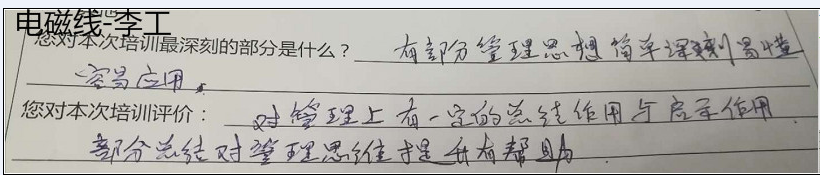 电磁线-李工
您对本次培训最深刻的部分是什么？ 有部分管理思想简单深刻易懂
容易应用。
您对本次培训评价： 对管理上有一定的总结作用与启示作用
部分总结对管理思维提升有帮助.